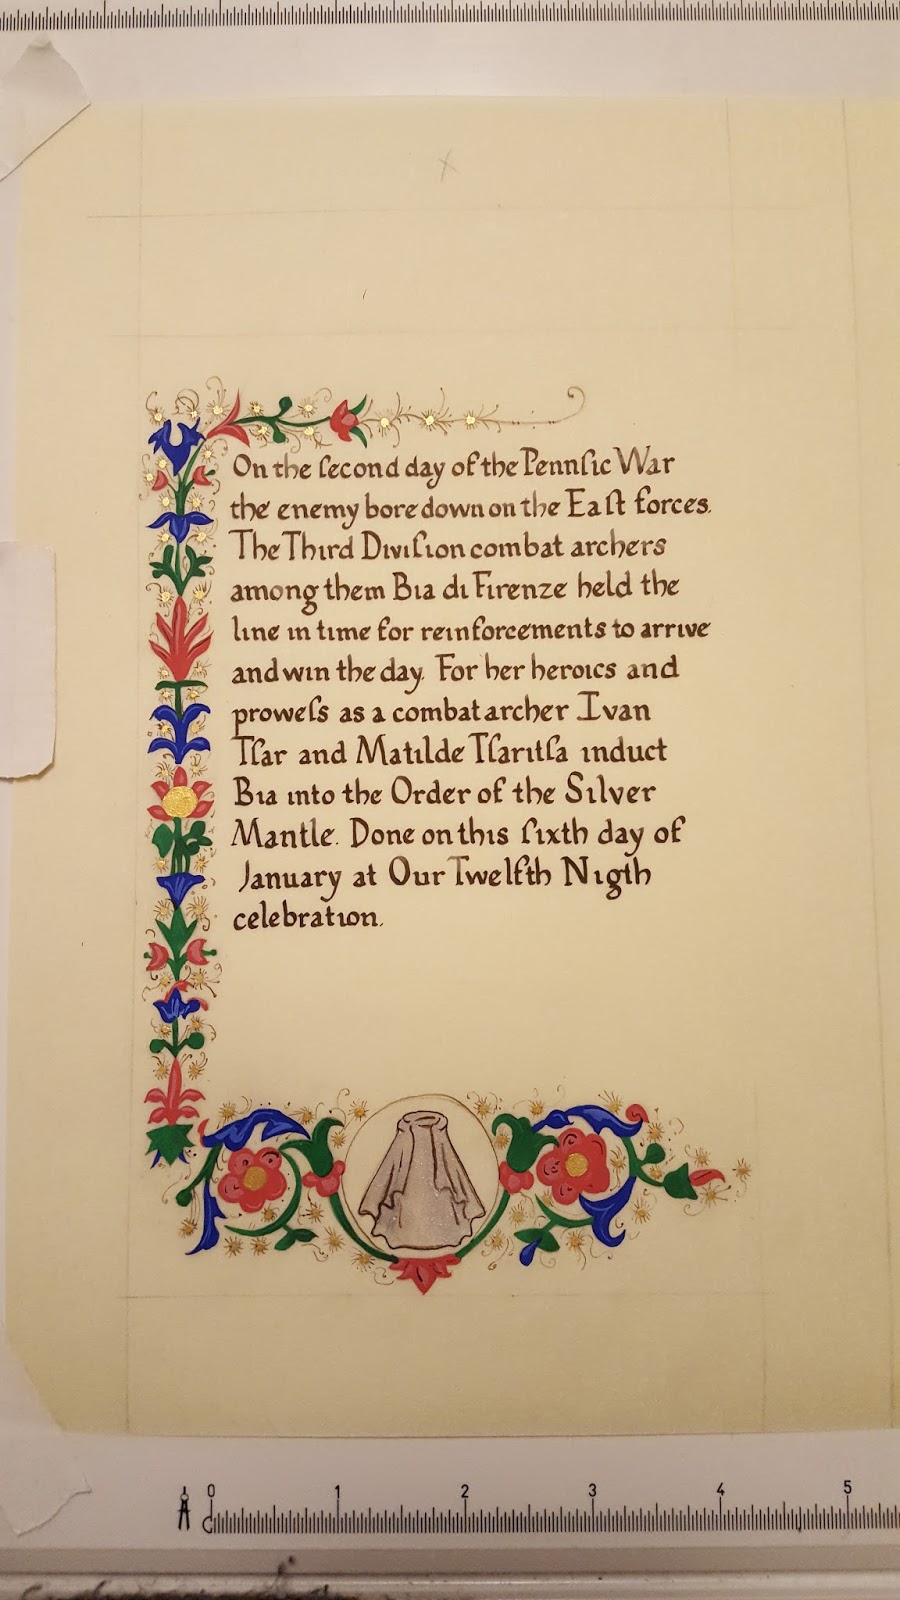 On the ſecond day of the Pennſic War
the enemy bore down on the Eaſt forces.
The Third Diviſion combat archers
among them Bia di Firenze held the
line in time for reinforcements to arrive
and win the day. For her heroics and
proweſs as a combat archer Ivan
Tſar and Matilde Tſaritſa induct
Bia into the Order of the Silver
Mantle. Done on this ſixth day of
January at Our Twelfth Nigth
celebration.
0 1 2 3 4 5